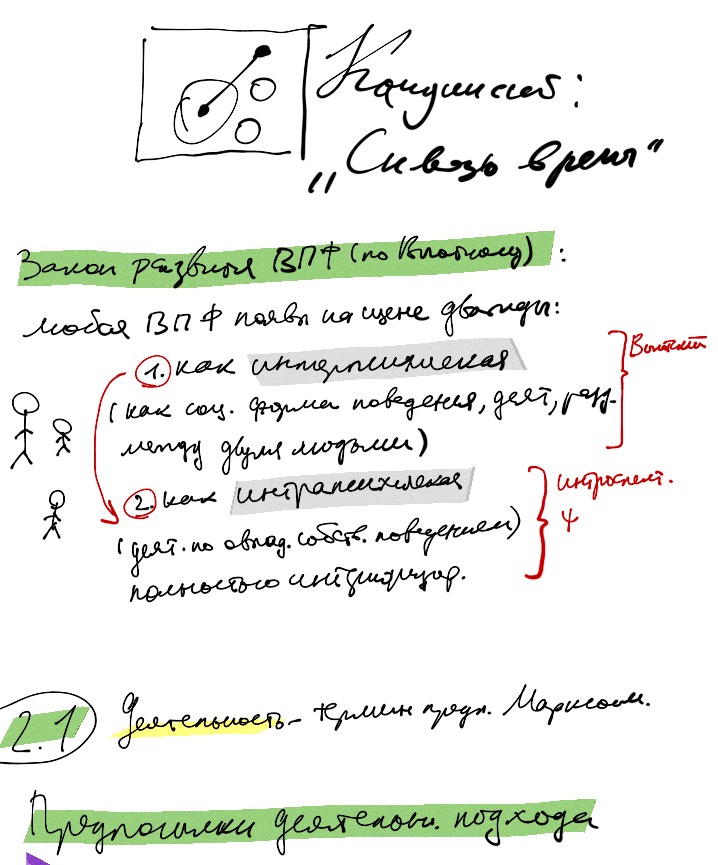 Кандинский:
„Сквозь время"
Закон развития ВПФ (по Выготскому):
любая ВПФ появл на сцене дважды:
1. как интерпсихическая
(как соц. форма поведения, деят,
между двумя людьми)
Выготский
2. как интрапсихическая
(деят. по овлад. собств. поведением)
полностью интериориз.
интроспект.
Ψ
2.1 Деятельность – термин предл. Марксом.
Предпосылки деятельн. подхода